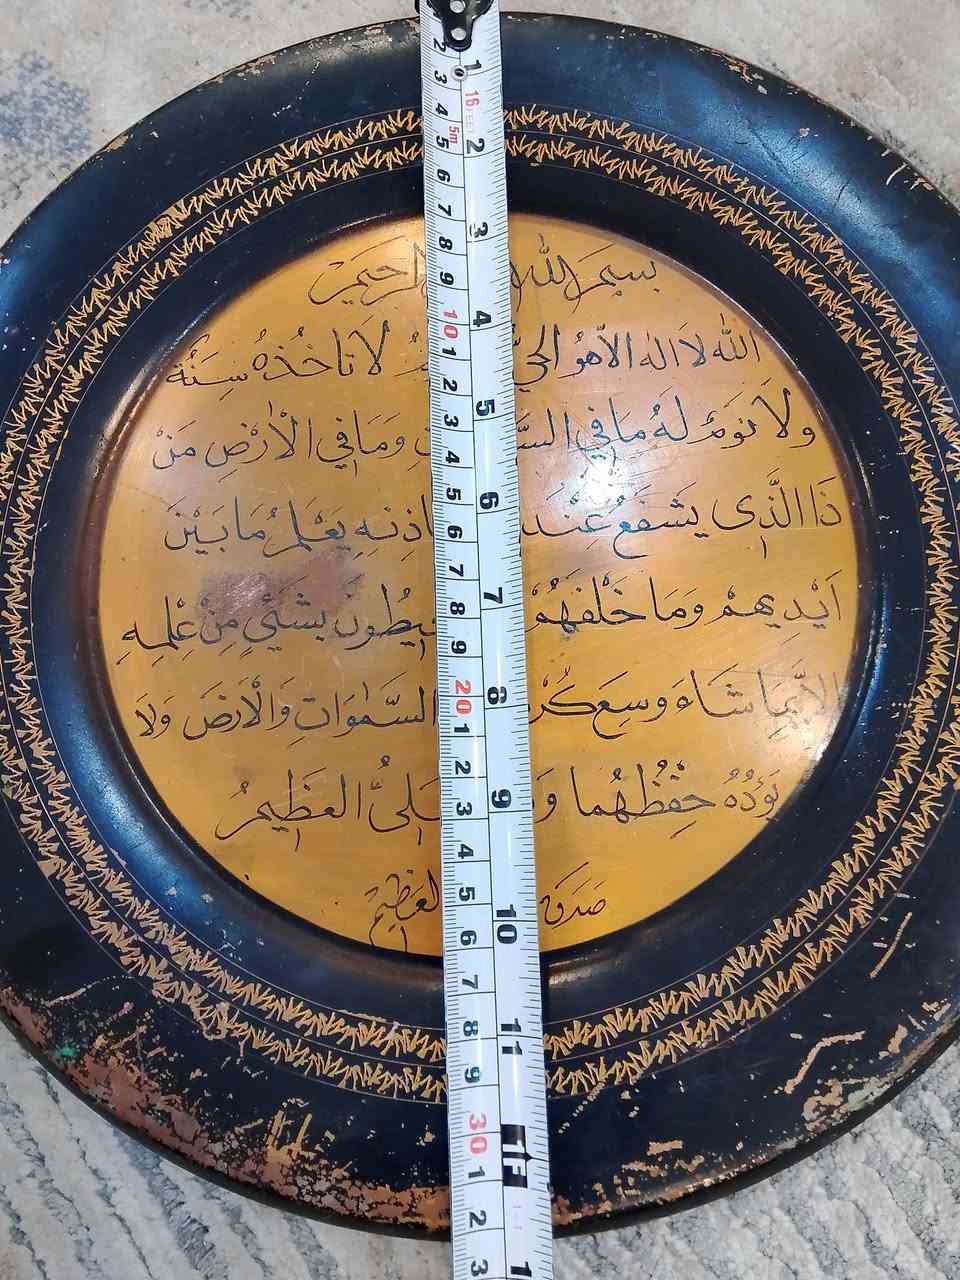 بِسْمِ اللهِ الرحيم
اَللهُ لَا اله الّا هُوَ الحَيُّ لَا تَاخُذُهُ سِنَةٌ
وَلَا نَوْمٌ لَهُ مَا فِي وَمَا فِي الْاَرْضِ مَنْ
ذَا الَّذِى يَشْفَعُ عِنْدَ بِاِذْنِهِ يَعْلَمُ مَا بَيْنَ
اَيْدِيهِمْ وَمَا خَلْفَهُمْ يُحِيطُونَ بِشَئٍ مِنْ عِلْمِهِ
اِلَّا بِمَا شَاءَ وَسِعَ السَّمٰوَاتِ وَالْاَرْضَ وَلَا
يَؤُدُهُ حِفْظُهُمَا العَلِىُّ العَظِيمُ
صَدَقَ العَظِيمُ
2 3 4 5 6 7 8 9 10 1 2 3 4 5 6 7 8 9 20 1 2 3 4 5 6 7 8 9 30 1 2 3
1 2 3 4 5 6 7 8 9 10 11 1F 1
16 FEET
5m